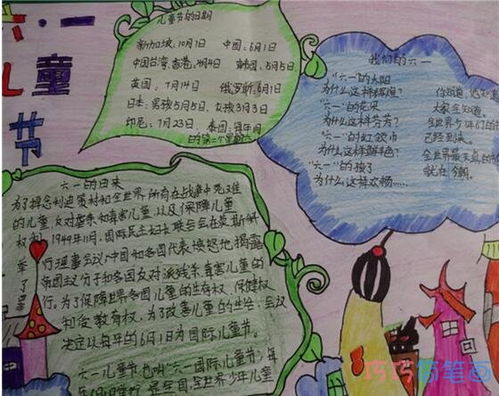 六·一
儿童
节
儿童节的日期
新加坡:10月1日 中国:6月1日
中国台湾,香港:4月4日 韩国:5月5日
英国:7月14日 俄罗斯:6月1日
日本:男孩5月5日、女孩3月3日
印尼:7月23日、泰国:每年1月
的第二个星期六
我们的六一
"六一"的太阳
为什么这样
"六一"的花儿
为什么这样芬芳?
"六一"的红领巾
为什么这样鲜艳?
"六一"的
为什么这样欢畅……
你知道,
大家
全世界少年
已经
全世界
就在今朝。
六一的由来
为了悼念利迪策村和全世界所有在战争中死难
的儿童,反对虐杀和毒害儿童,以及保障儿童
权利,1949年11月,国际民主妇女联合会在莫斯科
举行理事会议,中国和各国代表愤怒地揭露
了帝国主义分子和各国反动派残杀、毒害儿童的
罪行。为了保障世界各国儿童的生存权、保健权
和受教育权,为了改善儿童的生活,会议
决定以每年的6月1日为国际儿童节。
六一儿童节,也叫"六一国际儿童节",每年
是全国,全世界少年儿童
巧巧简笔画